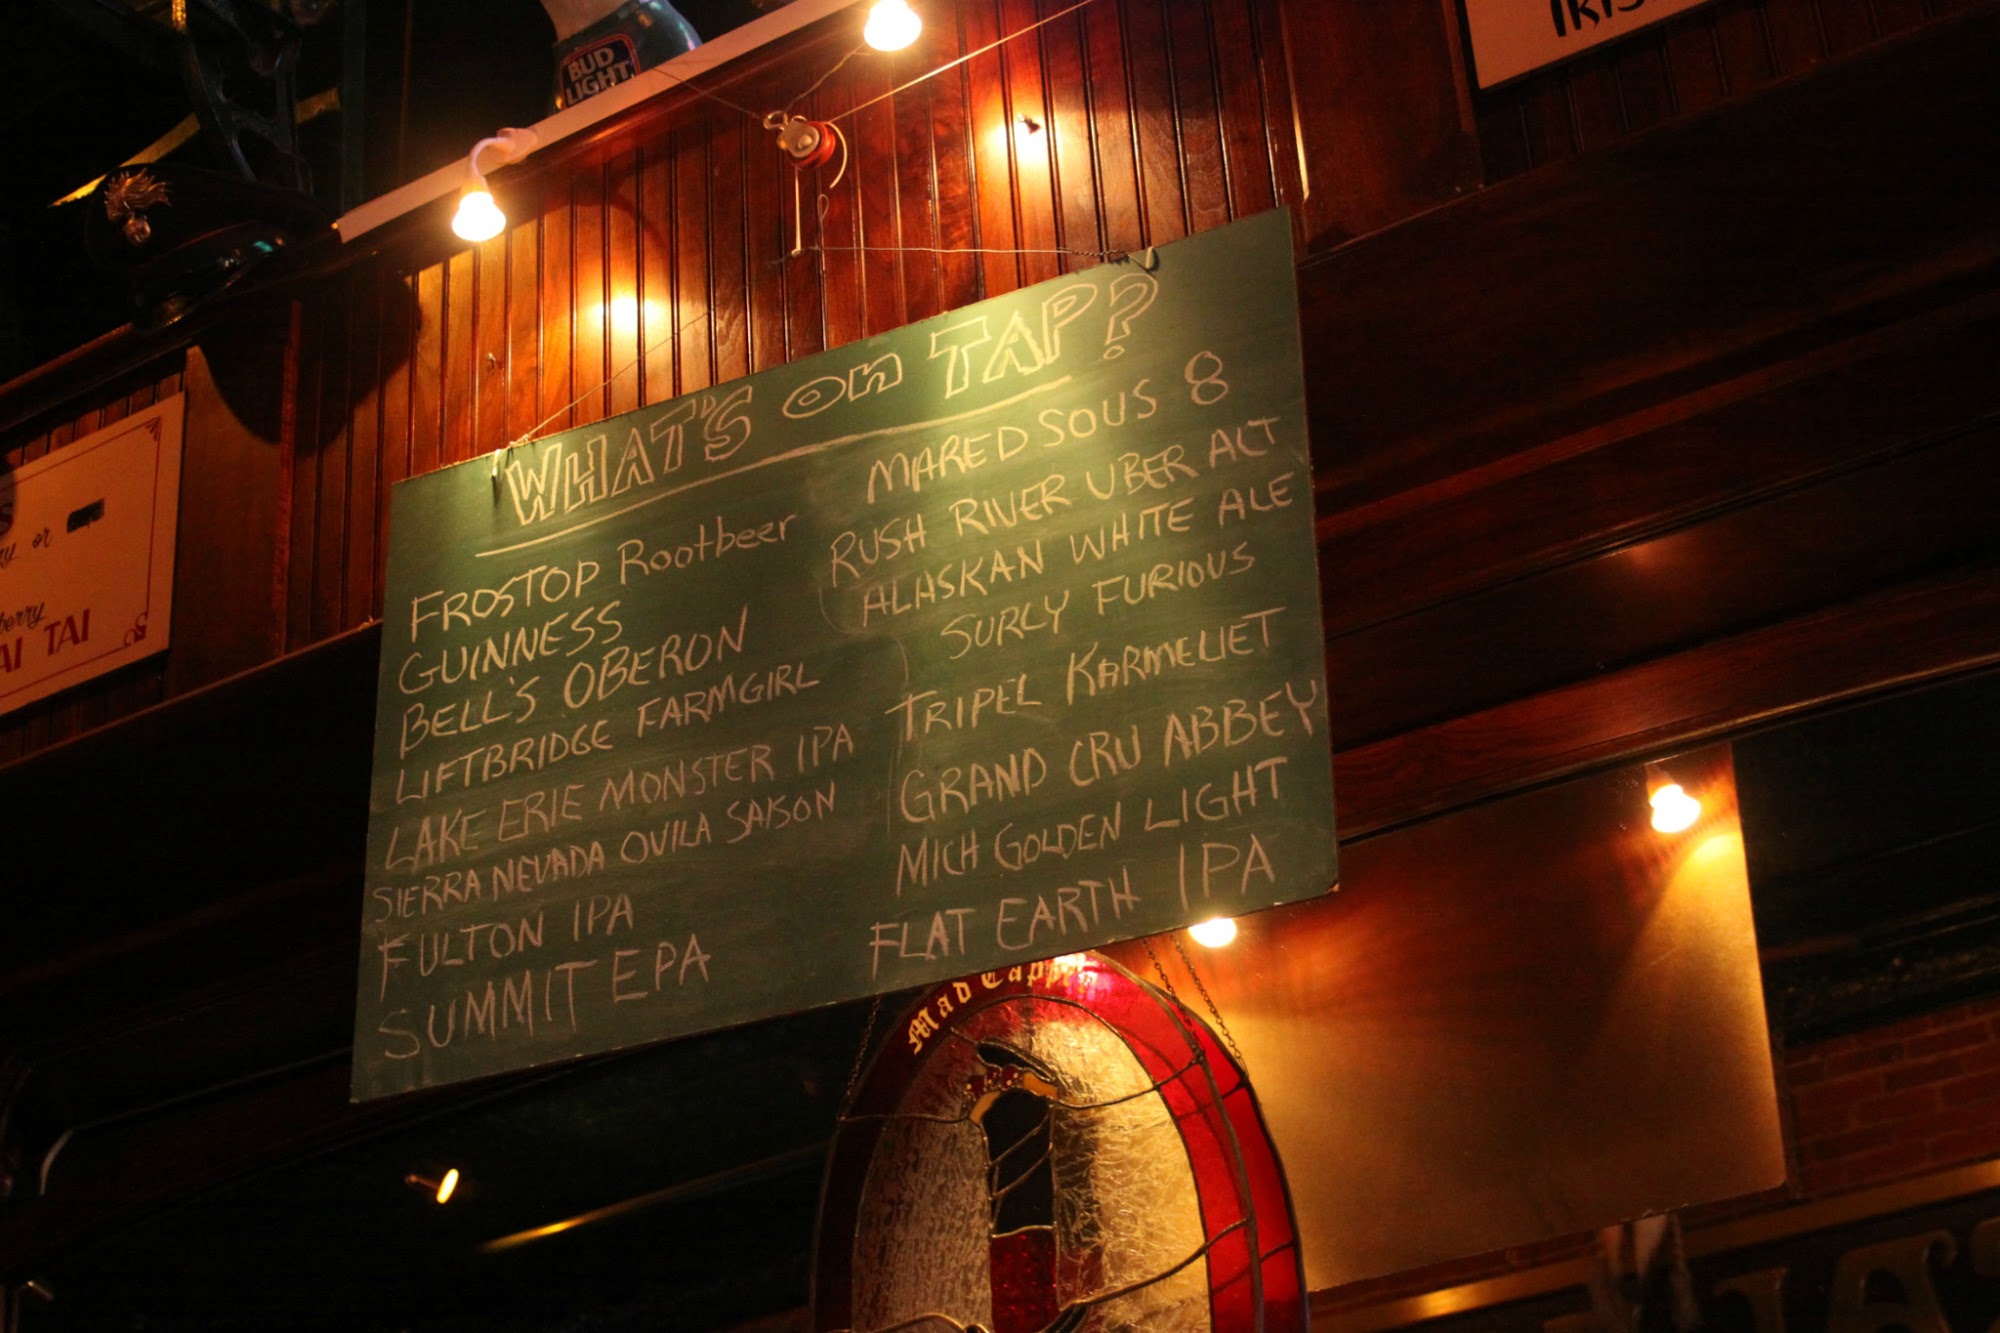 BUD
LIGHT
IRIS
WHAT'S on TAP?
FROSTOP Rootbeer
GUINNESS
BELL'S OBERON
LIFTBRIDGE FARMGIRL
LAKE ERIE MONSTER IPA
SIERRA NEVADA OVILA SAISON
FULTON IPA
SUMMIT EPA
MAREDSOUS 8
RUSH RIVER UBER ALT
ALASKAN WHITE ALE
SURLY FURIOUS
TRIPEL KARMELIET
GRAND CRU ABBEY
MICH GOLDEN LIGHT
FLAT EARTH IPA
or
berry
AI TAI
Mad Capper